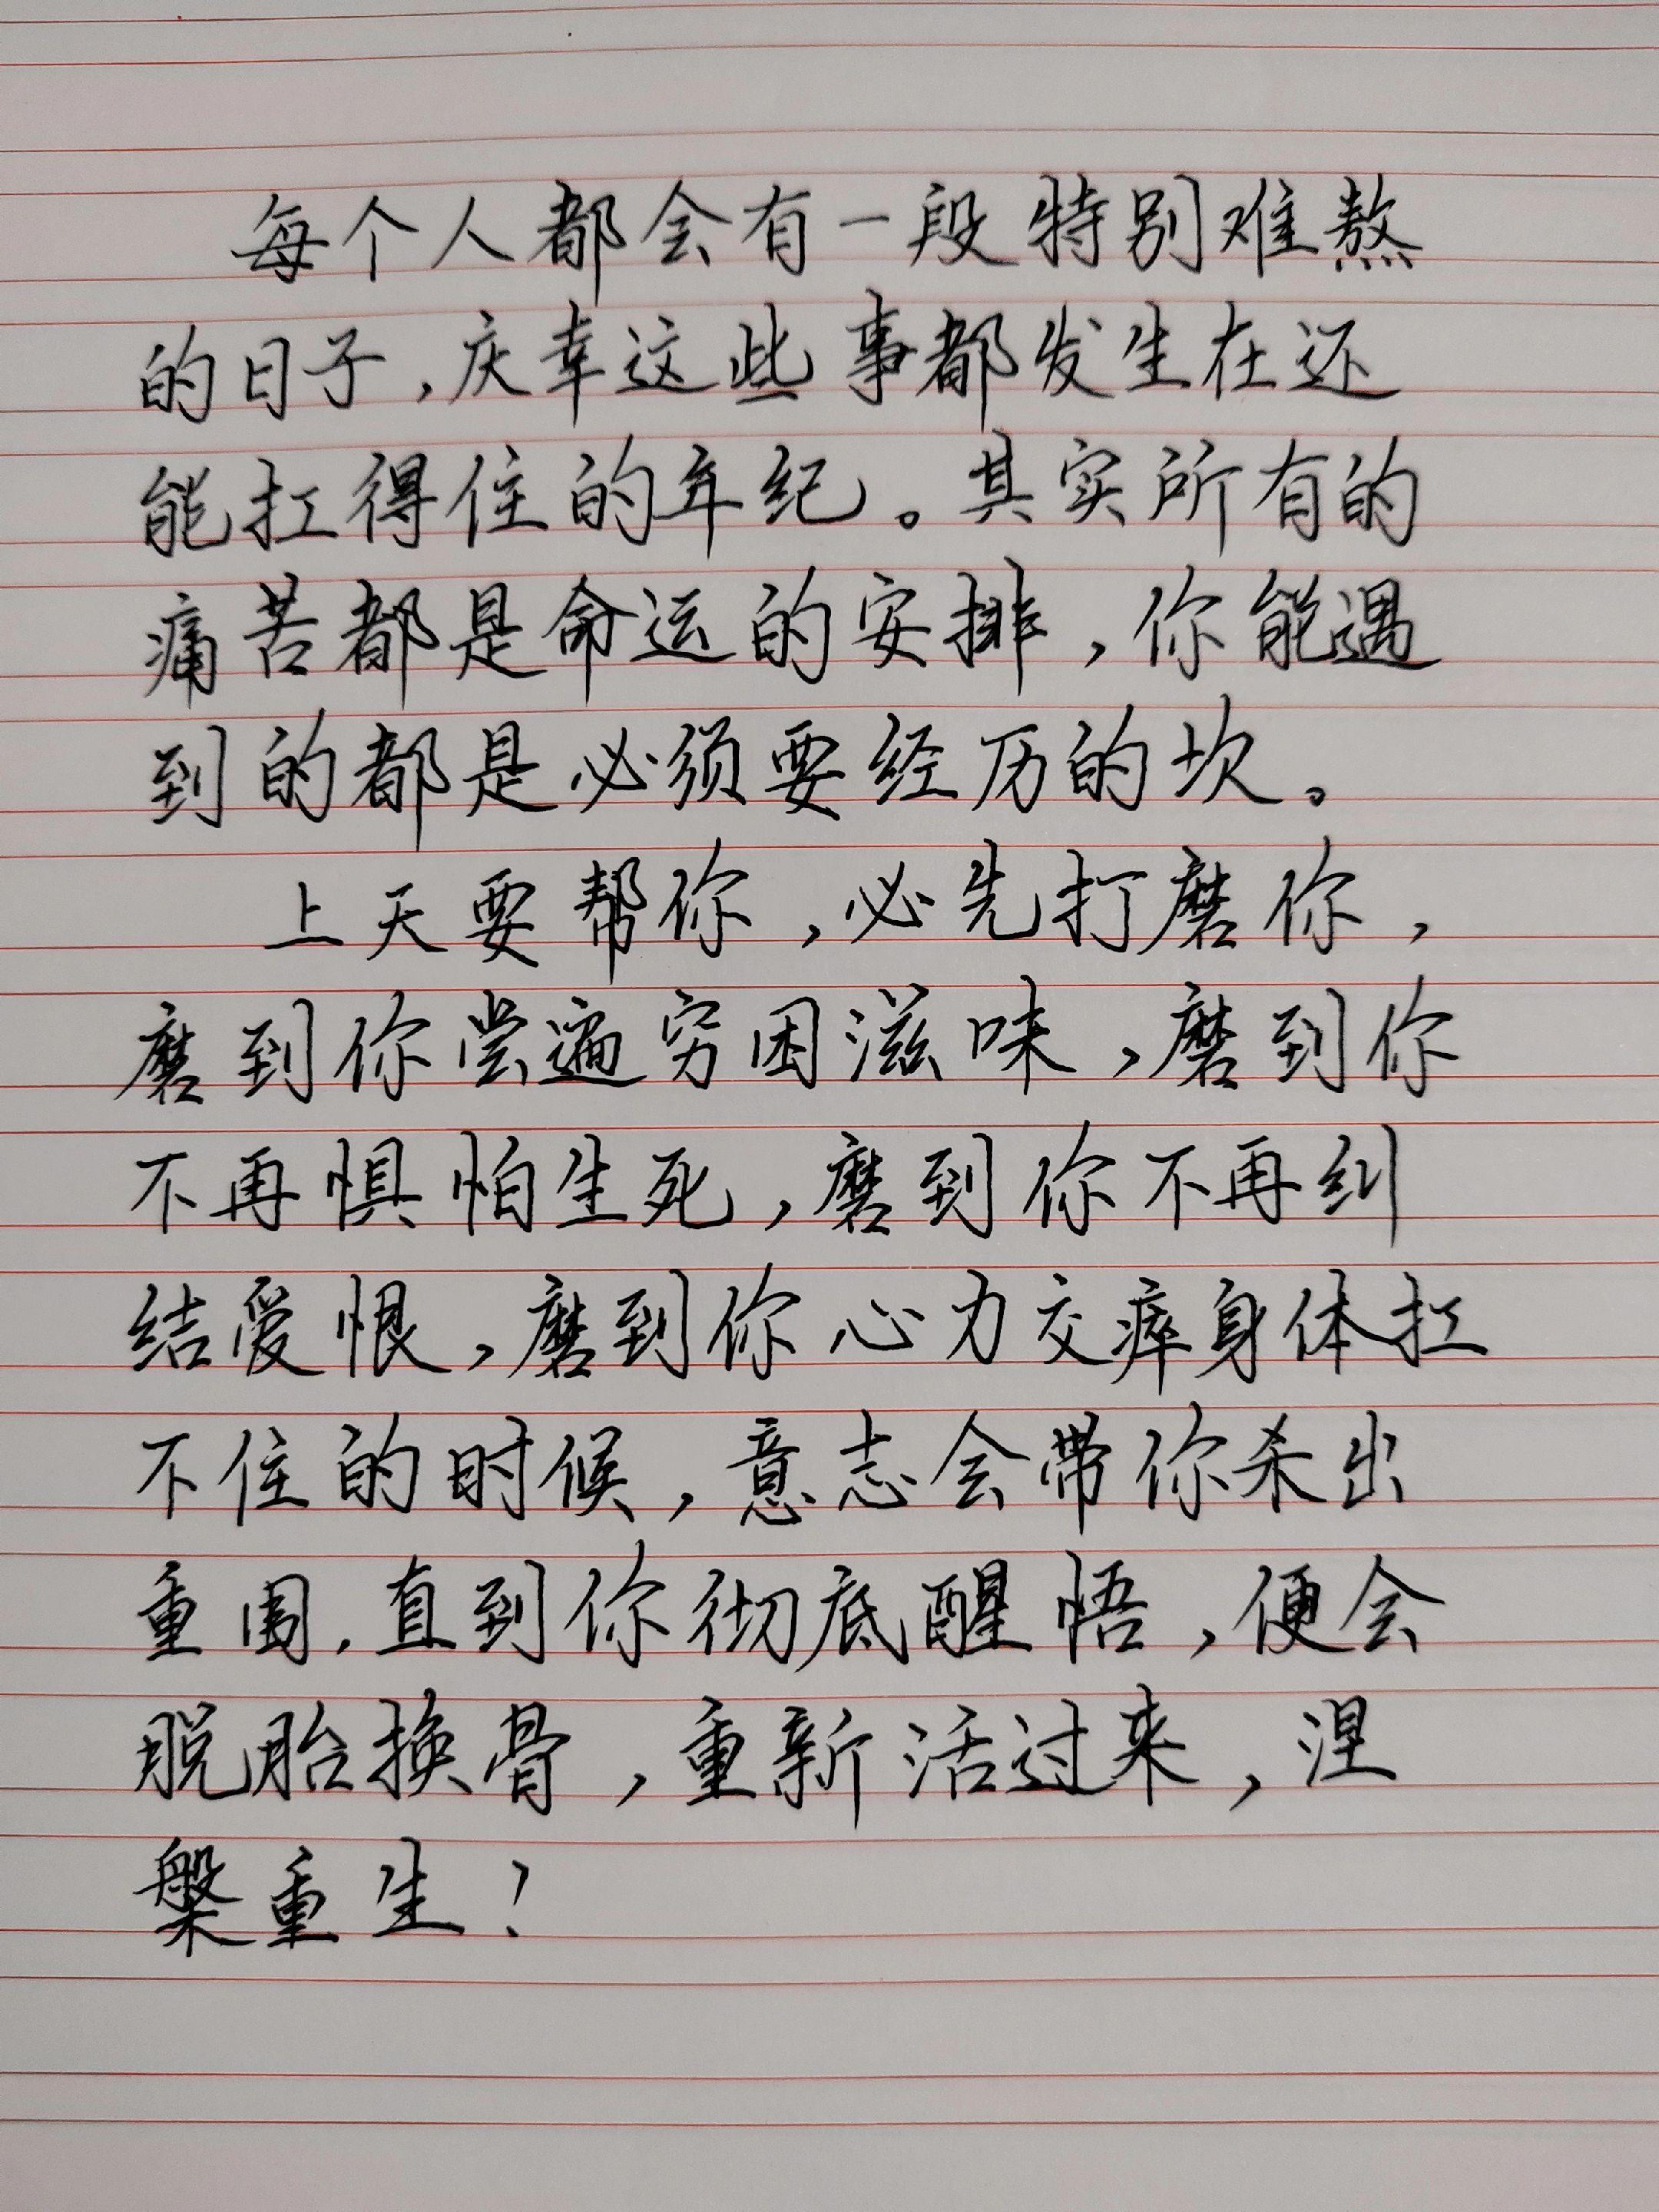 每个人都会有一段特别难熬
的日子,庆幸这些事都发生在还
能扛得住的年纪。其实所有的
痛苦都是命运的安排,你能遇
到的都是必须要经历的坎。
上天要帮你,必先打磨你,
磨到你尝遍穷困滋味,磨到你
不再惧怕生死,磨到你不再纠
结爱恨,磨到你心力交瘁身体扛
不住的时候,意志会带你杀出
重围,直到你彻底醒悟,便会
脱胎换骨,重新活过来,涅
槃重生!